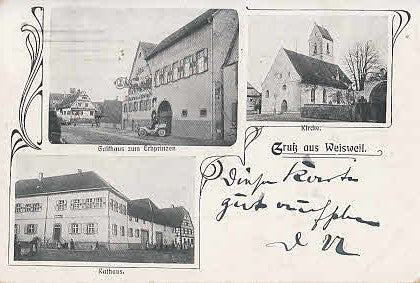 Gasthaus zum Erbprinzen
Kirche.
Gruß aus Weisweil.
Diese Karte
gut aufheben
Rathaus.